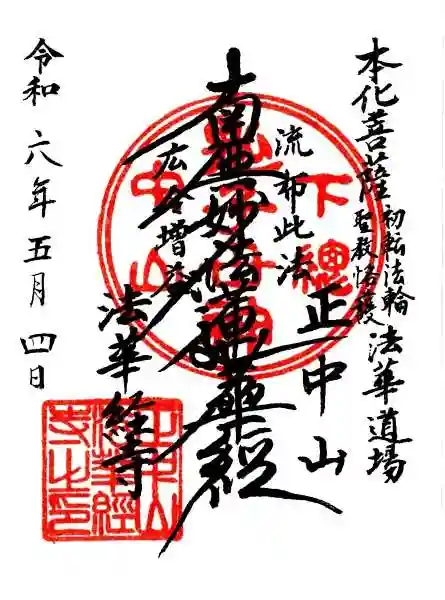 本化菩薩初転法輪聖教恪護法華道場
正中山
流布此法
南無妙法蓮華経
広令増益
法華経寺
令和六年五月四日
下總
中山